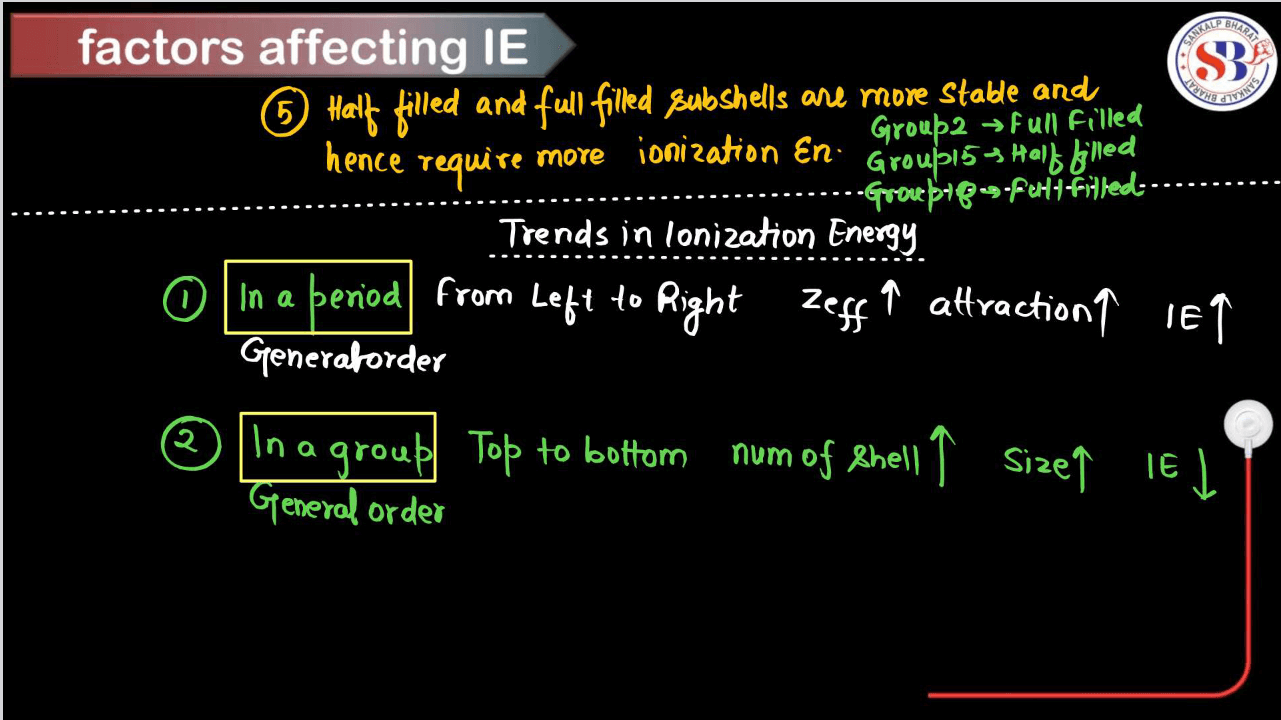 factors affecting IE
SANKALP BHARAT
SB
SANKALP BHARAT
⑤ Half filled and full filled subshells are more stable and
hence require more ionization En.
Group2 → Full Filled
Group15 → Half filled
Group18 → Full filled
Trends in Ionization Energy
① In a period From Left to Right Zeff ↑ attraction ↑ IE ↑
General order
② In a group Top to bottom num of shell ↑ Size ↑ IE ↓
General order